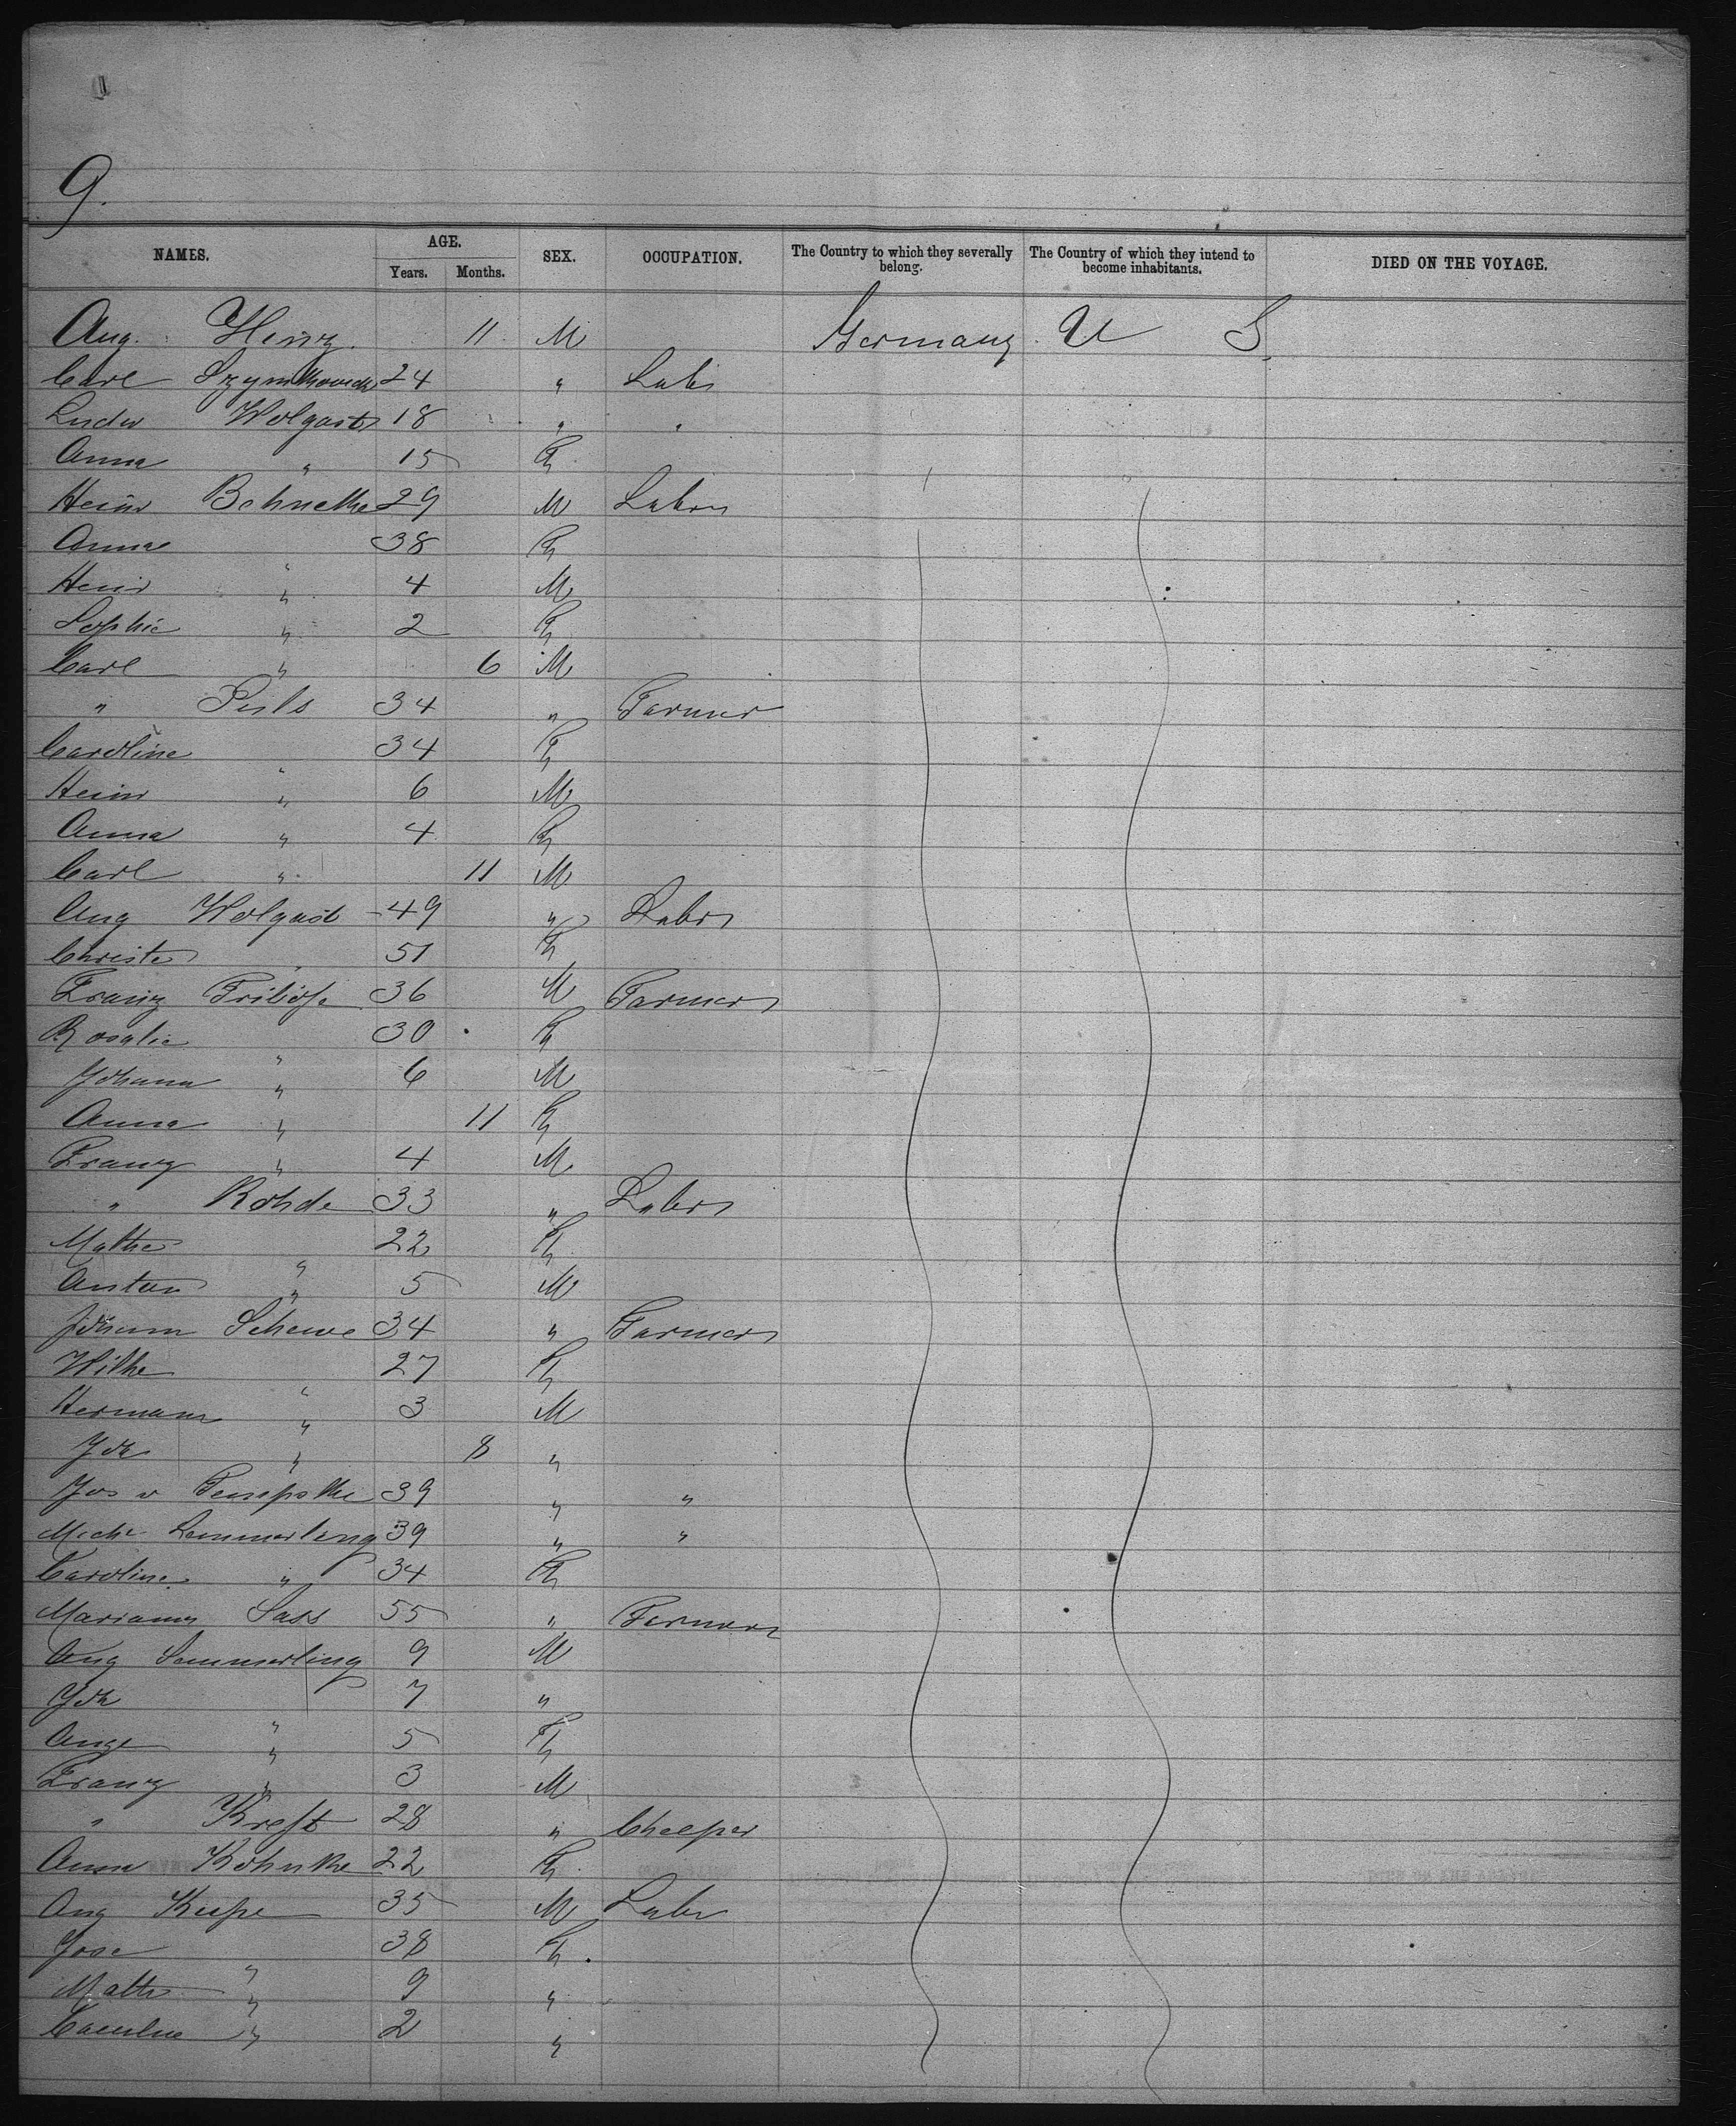 9.
NAMES. AGE. Years. Months. SEX. OCCUPATION. The Country to which they severally belong. The Country of which they intend to become inhabitants. DIED ON THE VOYAGE.
Aug. Henz. 11 M Germany U S.
Carl 24 " Labr
Ludw Wolgast 18 " "
Anna " 15 F
Heinr Bohnethe 29 M Labor
Anna " 38 F
Heinr " 4 M
Sophie " 2 F
Carl " 6 M
" Puls 34 " Farmer
Caroline " 34 F
Heinr " 6 M
Anna " 4 F
Carl " 11 M
Aug Wolgast 49 " Labor
Christe " 51 F
Franz 36 M Farmer
Rosalie " 30 F
Johann " 6 M
Anna " 11 F
Franz " 4 M
" Rohde 33 " Labor
Mathe " 22 F
Anton " 5 M
Johann Schewe 34 " Farmer
Wilhe " 27 F
Hermann " 3 M
Joh " 8 "
Jos v 39 " "
Mich Lemmerling 39 " "
Caroline " 34 F
Mariann Sass 55 " Farmer
Aug Semmerling 9 M
Joh " 7 "
Auge " 5 F
Franz " 3 M
" Kreft 28 "
Anna Kohnke 22 F
Aug 35 M Labr
Jose " 38 F
Math " 9 "
" 2 "